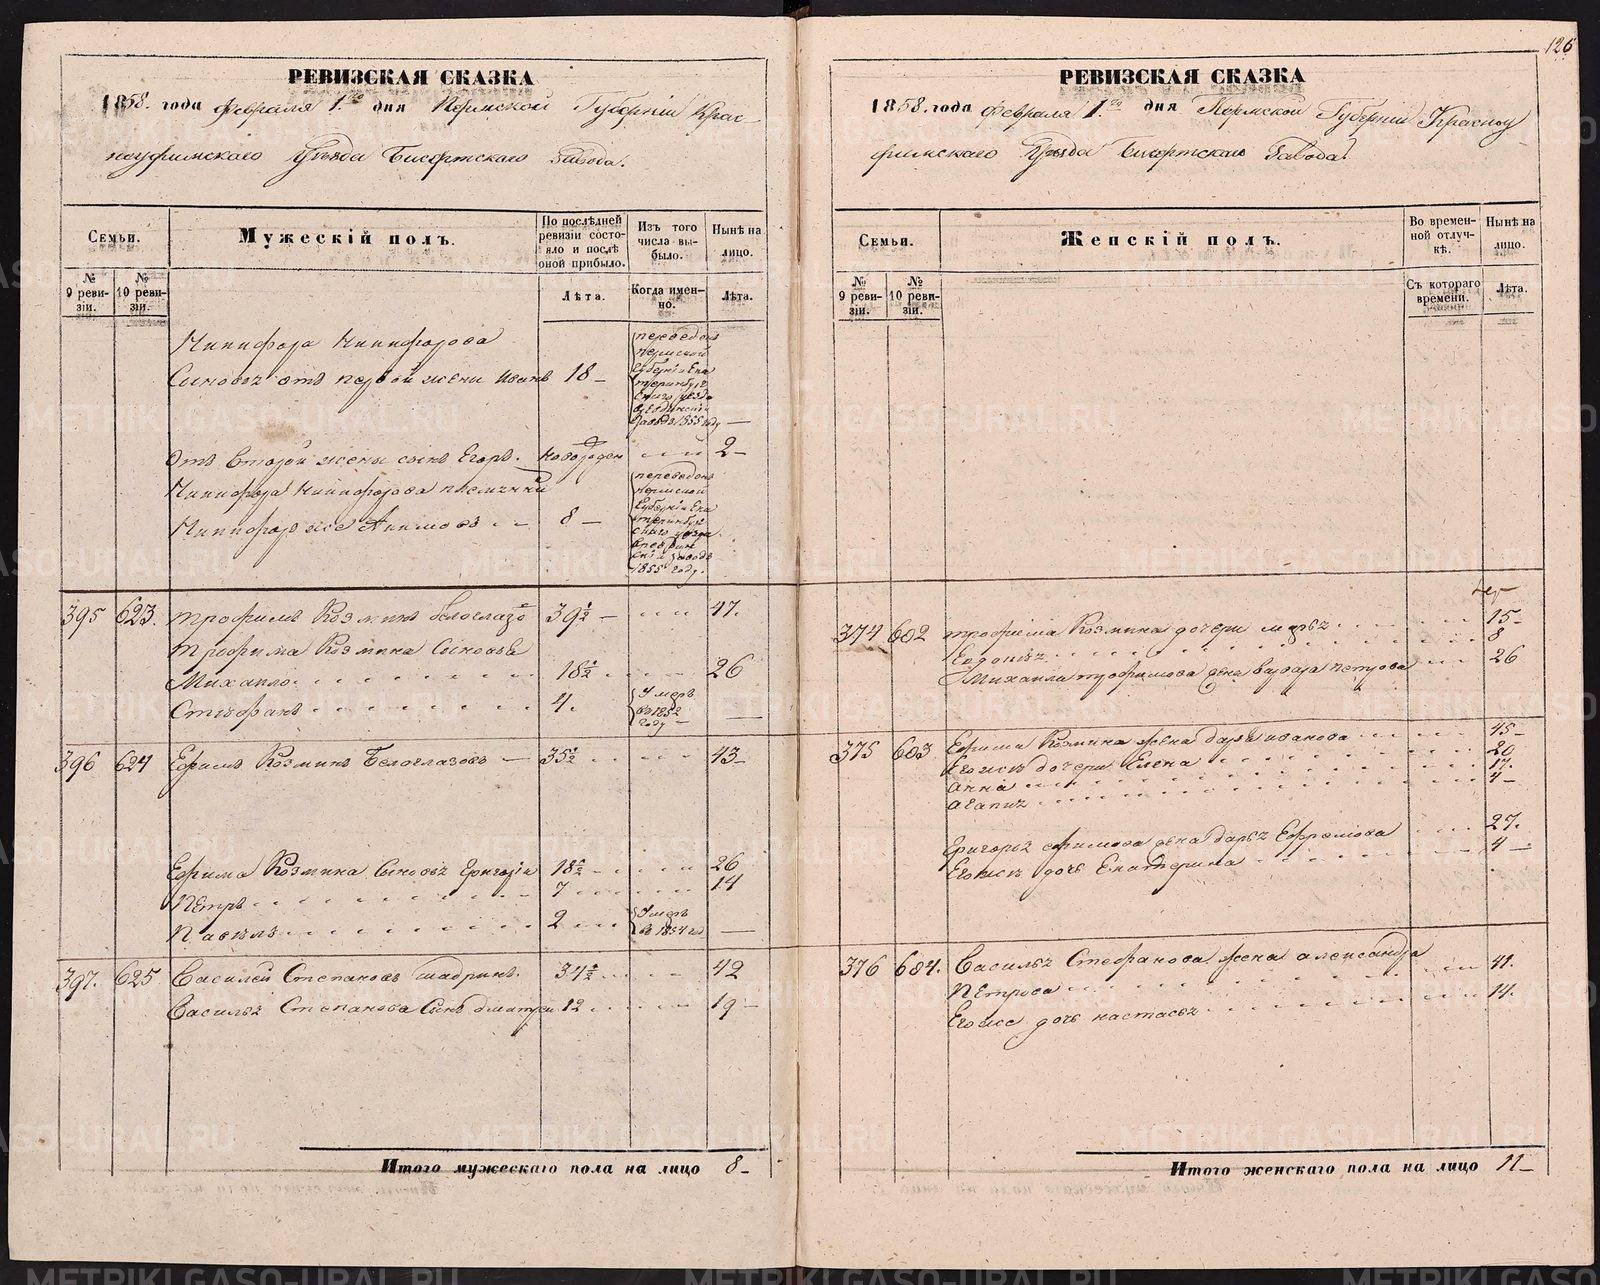 РЕВИЗСКАЯ СКАЗКА
1858. года Февраля 1го дня Пермской Губерніи Крас
ноуфимскаго Уѣзда Бисертскаго Завода.
Семьи.
Мужескій полъ.
По послѣдней ревизіи состо-
яло и послѣ оной прибыло.
Изъ того числа вы-
было.
Нынѣ на лицо.
№ 9 реви-
зіи.
№ 10 реви-
зіи.
Лѣта.
Когда имен-
но.
Лѣта.
Никифора Никифорова
Сыновья отъ первой жены Иванъ 18 —
переведенъ
Пермской
Губерніи Ека
теринбург
скаго уѣзда
заводъ 1855 году —
Отъ второй жены сынъ Егоръ. новорожден 2 —
Никифора Никифорова племянник
Никифор же Акимовъ 8 —
переведенъ
Пермской
Губерніи Ека
теринбург
скаго уѣзда
скій заводъ
1855 году.
395 623. Трофимъ Козминъ Белоглазо 39½ — 47.
Трофима Козмина Сыновья
Михайло 18½ 26
Стефанъ 4. Умеръ
въ 1852
году —
396 624 Ефимъ Козминъ Белоглазовъ — 35½ 43 —
Ефима Козмина Сыновья Григорій 18½ 26
Петръ 7 14
Павелъ 2 Умеръ
въ 1854 год —
397. 625 Василей Степановъ Шадринъ. 34½ 42
Василья Степанова Сынъ Дмитрей 12 19 —
Итого мужескаго пола на лицо 8 —
126
РЕВИЗСКАЯ СКАЗКА
1858. года Февраля 1го дня Пермской Губерніи Красноу
фимскаго Уѣзда Бисертскаго Завода.
Семьи.
Женскій полъ.
Во времен-
ной отлуч-
кѣ.
Нынѣ на лицо.
№ 9 реви-
зіи.
№ 10 реви-
зіи.
Съ котораго времени.
Лѣта.
374 602 Трофима Козмина дочери Марья 15 —
Евдокья 8
Михаила Трофимова жена Варвара Петрова 26
375 603 Ефима Козмина жена Дарья Иванова 45 —
Его же дочери Елена 20
Анна 17.
Агапия 4 —
Григорья Ефимова жена Дарья Ефремова 27.
Его же дочь Екатерина 4 —
376 604. Василья Стефанова жена Александра
Петрова 41.
Его же дочь Настасья 14.
Итого женскаго пола на лицо 11 —
METRIKI.GASO-URAL.RU